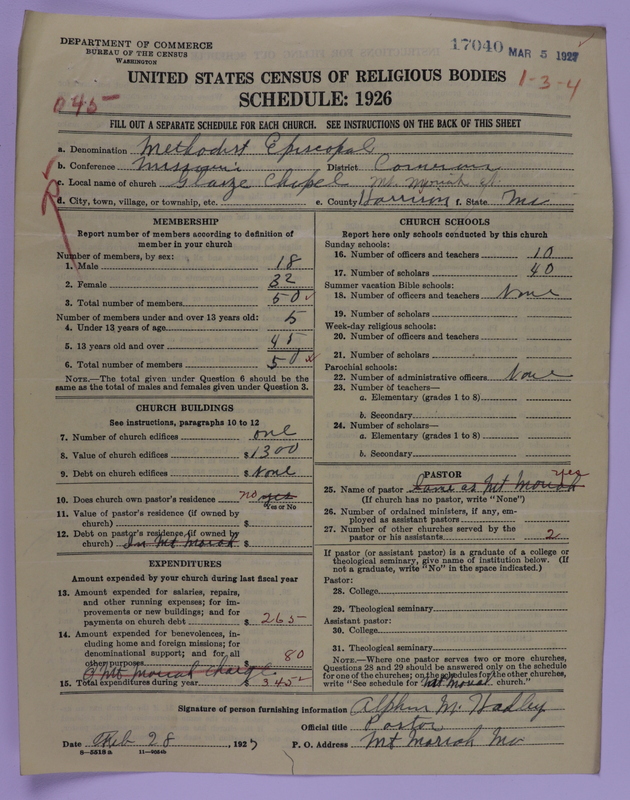 DEPARTMENT OF COMMERCE
BUREAU OF THE CENSUS
WASHINGTON
17040 MAR 5 1927
UNITED STATES CENSUS OF RELIGIOUS BODIES
1-3-4
SCHEDULE: 1926
045
FILL OUT A SEPARATE SCHEDULE FOR EACH CHURCH. SEE INSTRUCTIONS ON THE BACK OF THIS SHEET
a. Denomination Methodist Episcopal
b. Conference Missouri District Cameron
c. Local name of church Glaize Chapel Mt. Moriah
d. City, town, village, or township, etc. e. County Harrison f. State Mo
MEMBERSHIP
Report number of members according to definition of member in your church
Number of members, by sex:
1. Male 18
2. Female 32
3. Total number of members 50
Number of members under and over 13 years old:
4. Under 13 years of age 5
5. 13 years old and over 45
6. Total number of members 50
NOTE.—The total given under Question 6 should be the same as the total of males and females given under Question 3.
CHURCH BUILDINGS
See instructions, paragraphs 10 to 12
7. Number of church edifices one
8. Value of church edifices $1300
9. Debt on church edifices $None
10. Does church own pastor's residence no yes
Yes or No
11. Value of pastor's residence (if owned by church) $
12. Debt on pastor's residence (if owned by church) In Mt Moriah $
EXPENDITURES
Amount expended by your church during last fiscal year
13. Amount expended for salaries, repairs, and other running expenses; for improvements or new buildings; and for payments on church debt $ 265
14. Amount expended for benevolences, including home and foreign missions; for denominational support; and for all other purposes 80
Mt Moriah Charge
15. Total expenditures during year $ 345
CHURCH SCHOOLS
Report here only schools conducted by this church
Sunday schools:
16. Number of officers and teachers 10
17. Number of scholars 40
Summer vacation Bible schools:
18. Number of officers and teachers None
19. Number of scholars
Week-day religious schools:
20. Number of officers and teachers
21. Number of scholars
Parochial schools:
22. Number of administrative officers None
23. Number of teachers—
a. Elementary (grades 1 to 8)
b. Secondary
24. Number of scholars—
a. Elementary (grades 1 to 8)
b. Secondary
PASTOR
yes
25. Name of pastor Same as Mt Moriah
(If church has no pastor, write "None")
26. Number of ordained ministers, if any, employed as assistant pastors
27. Number of other churches served by the pastor or his assistants 2
If pastor (or assistant pastor) is a graduate of a college or theological seminary, give name of institution below. (If not a graduate, write "No" in the space indicated.)
Pastor:
28. College
29. Theological seminary
Assistant pastor:
30. College
31. Theological seminary
NOTE.—Where one pastor serves two or more churches, Questions 28 and 29 should be answered only on the schedule for one of the churches; on the schedules for the other churches, write "See schedule for Mt Moriah church."
Signature of person furnishing information M. Hadley
Official title Pastor
Date Feb 28, 1927 P. O. Address Mt Moriah Mo
8-5518a 11-9504b